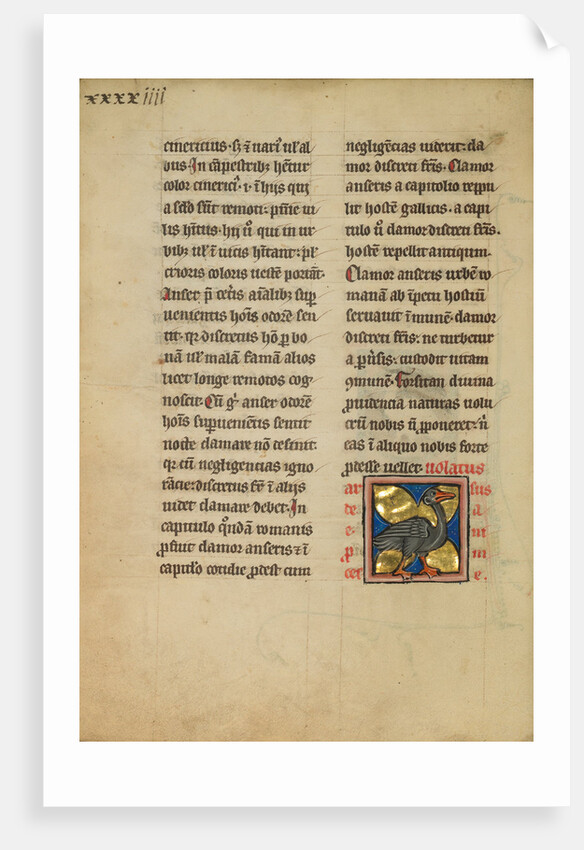 xxxxiiii
cinericius. sʒ ī uari⁹ ul' al
bus. In cāpestribꝫ hētur
color cinerici⁹. i. ī hijs qui
a sclō sūt remoti. pſ̄nie ui
lis hītus. hij u⁰ qui in ur
bibꝫ ul' ī uicis hītant. pl'
crioris coloris ueste portāt.
Anser p̄ cetis aīalibꝫ sup
uenientis hoīs odorē sen
tit. qr discretus hō ꝓ bo
nā ul' malam famā alios
licet longe remotos cog
noscit. Cū g⁰ anser odorē
hoīs supuenietis sentit
nocte clamare nō desinit.
qr cū negligencias igno
rācie: discretus fr̄ ī alijs
uidet clamare debet. In
capitulo qn̄dā romanis
ꝓfuit clamor anseris et ī
capitl'o cotidie ꝓdest cum
negligēcias uiderit: cla
mor discreti frīs. Clamor
anseris a capitolio reppu
lit hostē gallicis. a capi
tulo u⁰ clamor discreti frīs.
hostē repellit antiqum.
Clamor anseris urbē ro
manā ab īpetu hostiū
seruauit īmunē. clamor
discreti frīs. ne turbetur
a puīsis: custodit uitam
ꝯmunē. Forsitan diuina
ꝓuidencia naturas uolu
crū nobis nō ꝓponeret: nī
eas ī aliquo nobis forte
ꝓdesse uellet. uolatus
ar sus
de a
e. ni
ꝓ m
cer e.